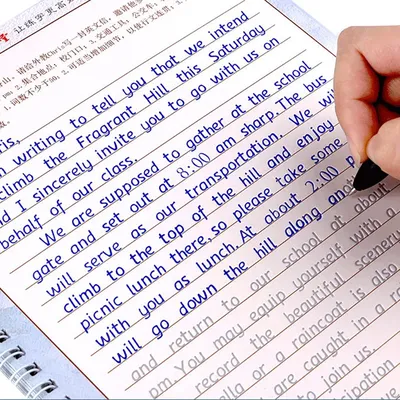 让练字更高
请给外教Chris写一封英文信，邀请他
2. 集合地点，校门口; 3. 交通工具，公交车
1. 词数不少于 2. 可适当增加细节，以使行文连贯
am writing to tell you that we intend
climb the Fragrant Hill this Saturday
d I sincerely invite you to go with us on
behalf of our class.
We are supposed to gather at the school
gate and set out at 8:00 am sharp. The bus
will serve as our transportation. We wi
climb to the top of the hill and enjoy
picnic lunch there, so please take some
with you as lunch. At about 2:00 p
will go down the hill along an
and return to our school at about
pm. You may equip yourself with a
record the beautiful scenery
ella or a raincoat is also
are caught in a rain
to join us.
icipation